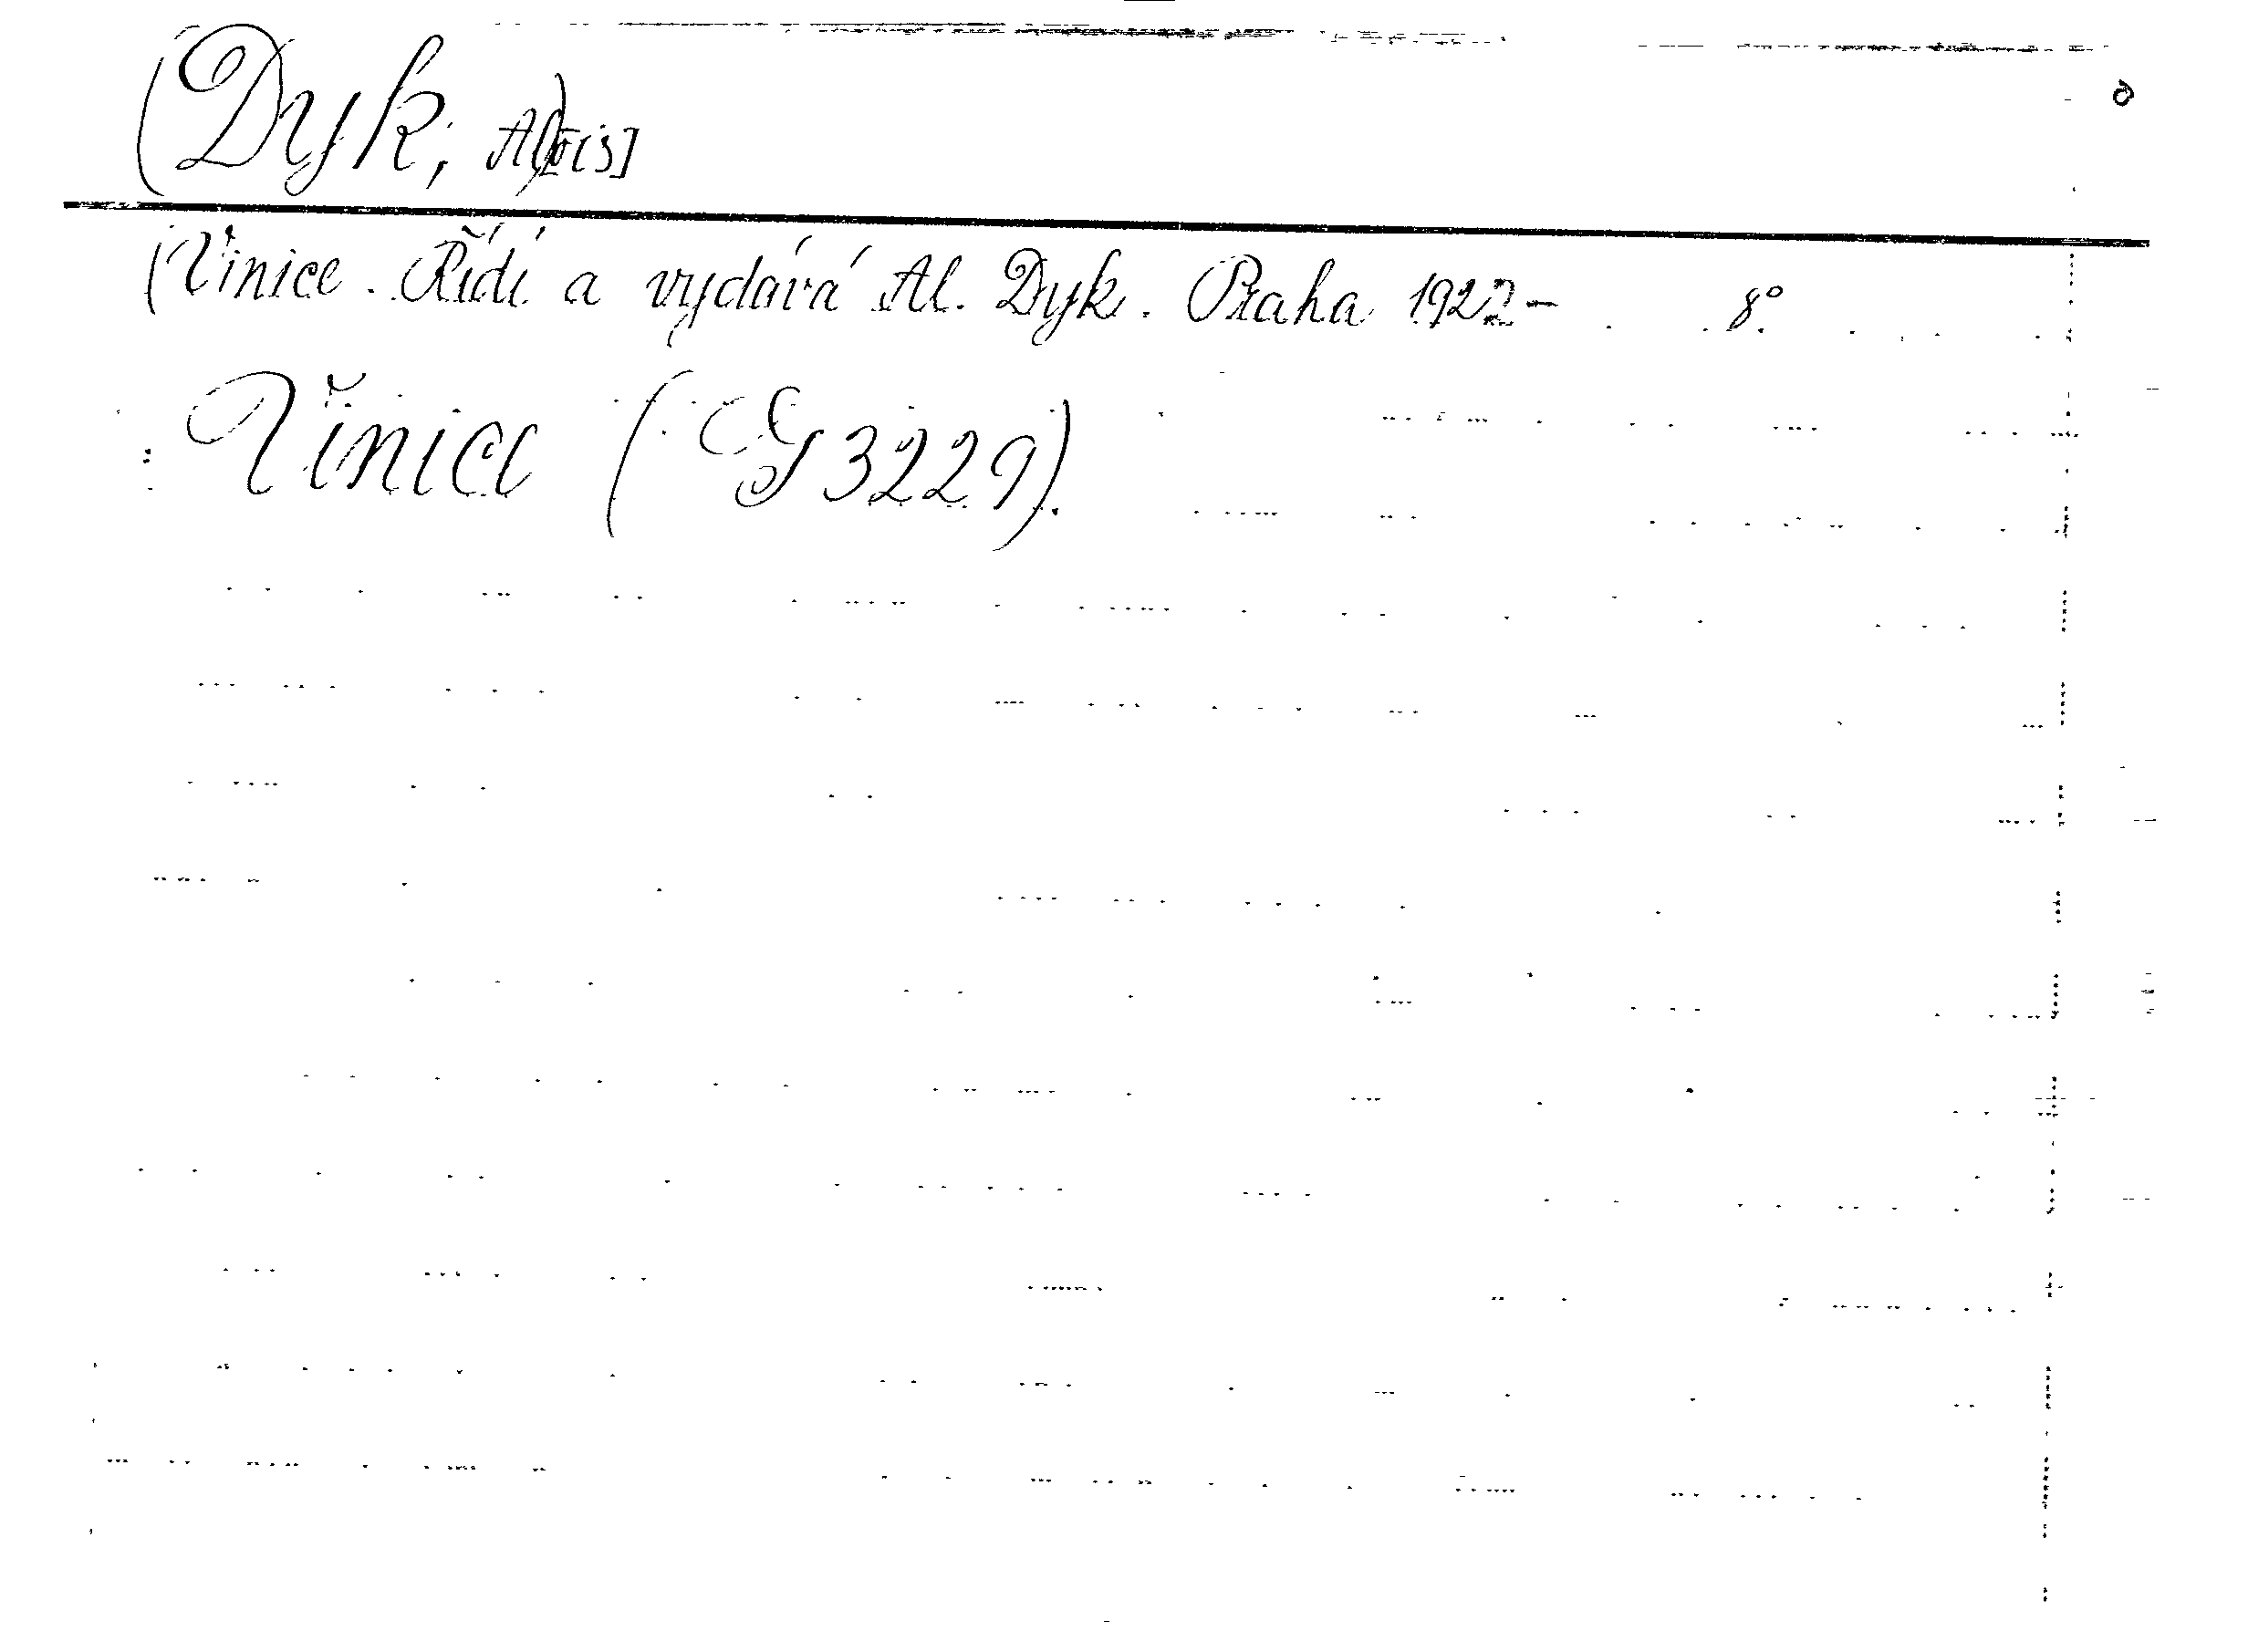 (Dyk, Al)[ois]
(Vinice. Řídí a vydává Al. Dyk. Praha 1922– 8°.
Vinice (G 3229).